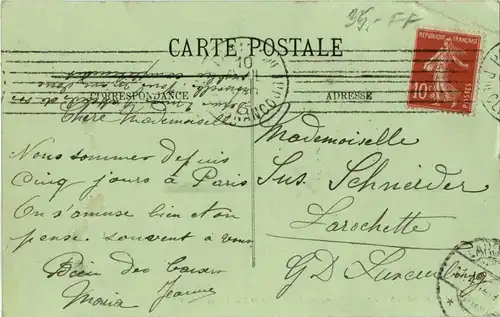 35,- FF
CARTE POSTALE
REPUBLIQUE FRANCAISE
10 c
POSTES
CORRESPONDANCE
ADRESSE
Chère Mademoiselle
Nous sommes depuis
cinq jours à Paris
On s'amuse bien et on
pense souvent à vous
Bien des
Maria Jeanne
Mademoiselle
Sus. Schneider
Larochette
G D Luxembourg